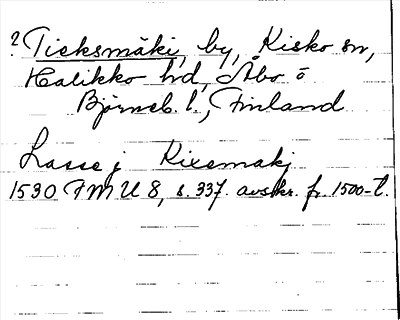 ? Tieksmäki, by, Kisko sn,
Halikko hd, Åbo o
Björneb. l., Finland
Lasse j Kixemakj
1530 FMU 8, s. 337. avskr. fr. 1500-t.